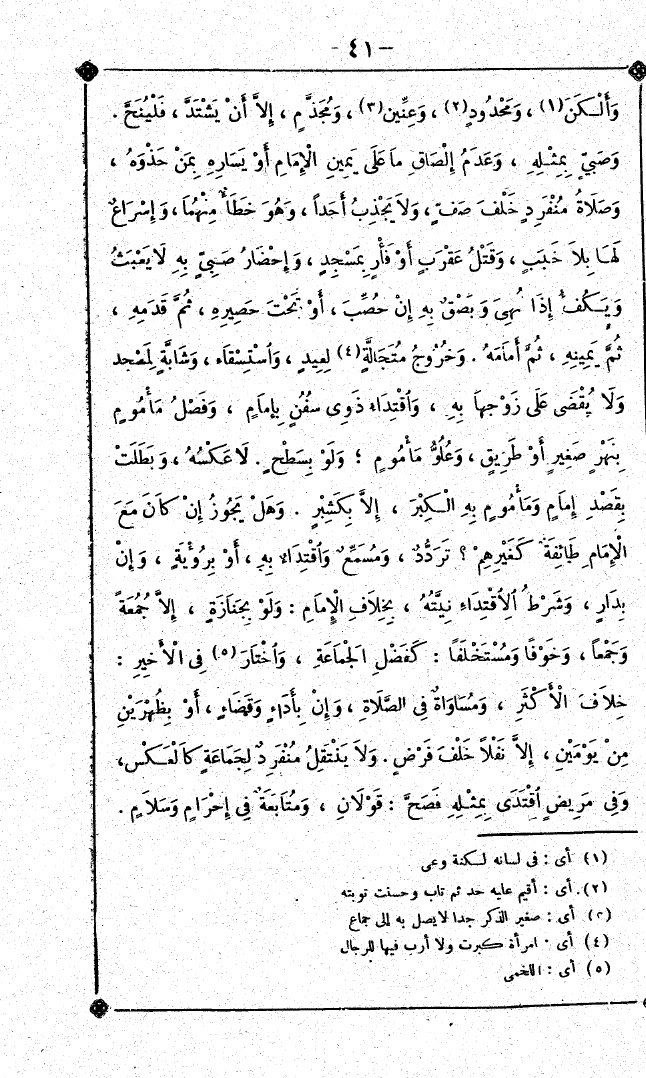 -٤١-
وَأَلْكَنَ(١) ، وَمَحْدُودٍ(٢) ، وَعِنِّينٍ(٣) ، وَمُجَذَّمٍ ، إِلاَّ أَنْ يَشْتَدَّ ، فَلْيُنَحَّ .
وَصَبِيٍّ بِمِثْلِهِ ، وَعَدَمُ إِلْصَاقِ مَا عَلَى يَمِينِ الْإِمَامِ أَوْ يَسَارِهِ بِمَنْ حَذْوَهُ ،
وَصَلَاةُ مُنْفَرِدٍ خَلْفَ صَفٍّ ، وَلاَ يَجْذِبُ أَحَداً ، وَهُوَ خَطَأٌ مِنْهُمَا ، وَإِسْرَاعٌ
لَهَا بِلاَ خَبَبٍ ، وَقَتْلُ عَقْرَبٍ أَوْ فَأْرٍ بِمَسْجِدٍ ، وَإِحْضَارُ صَبِيٍّ بِهِ لاَ يَعْبَثُ
وَيَكُفُّ إِذَا نُهِيَ وَبَصْقٌ بِهِ إِنْ حُصِّبَ ، أَوْ تَحْتَ حَصِيرِهِ ، ثُمَّ قَدَمِهِ ،
ثُمَّ يَمِينِهِ ، ثُمَّ أَمَامَهُ . وَخُرُوجُ مُتَجَالَّةٍ(٤) لِعِيدٍ ، وَاسْتِسْقَاءٍ ، وَشَابَّةٍ لِمَسْجِد
وَلاَ يُقْضَى عَلَى زَوْجِهَا بِهِ ، وَاقْتِدَاءُ ذَوِي سُفُنٍ بِإِمَامٍ ، وَفَصْلُ مَأْمُومٍ
بِنَهْرٍ صَغِيرٍ أَوْ طَرِيقٍ ، وَعُلُوُّ مَأْمُومٍ ؛ وَلَوْ بِسَطْحٍ . لاَ عَكْسُهُ ، وَبَطَلَتْ
بِقَصْدِ إِمَامٍ وَمَأْمُومٍ بِهِ الْكِبْرَ ، إِلاَّ بِكَشِبْرٍ . وَهَلْ يَجُوزُ إِنْ كَانَ مَعَ
الْإِمَامِ طَائِفَةٌ كَغَيْرِهِمْ ؟ تَرَدُّدٌ ، وَمُسَمِّعٌ وَاقْتِدَاءٌ بِهِ ، أَوْ بِرُؤْيَةٍ ، وَإِنْ
بِدَارٍ ، وَشَرْطُ الِاقْتِدَاءِ نِيَّتُهُ ، بِخِلَافِ الْإِمَامِ : وَلَوْ بِجَنَازَةٍ ، إِلاَّ جُمُعَةً
وَجَمْعاً ، وَخَوْفًا وَمُسْتَخْلَفًا : كَفَضْلِ الْجَمَاعَةِ ، وَاخْتَارَ(٥) فِي الْأَخِيرِ :
خِلاَفَ الْأَكْثَرِ ، وَمُسَاوَاةٌ فِي الصَّلاَةِ ، وَإِنْ بِأَدَاءٍ وَقَضَاءٍ ، أَوْ بِظُهْرَيْنِ
مِنْ يَوْمَيْنِ ، إِلاَّ نَفْلاً خَلْفَ فَرْضٍ . وَلاَ يَنْتَقِلُ مُنْفَرِدٌ لِجَمَاعَةٍ كَالْعَكْسِ ،
وَفِي مَرِيضٍ اقْتَدَى بِمِثْلِهِ فَصَحَّ : قَوْلاَنِ ، وَمُتَابَعَةٌ فِي إِحْرَامٍ وَسَلاَمٍ .
(١) أى : فى لسانه لسكنة وعى
(٢) . أى : أقيم عليه حد ثم تاب وحسنت توبته
(٣) أى : صغير الذكر جدا لا يصل به إلى جماع
(٤) أى : امرأة كبرت ولا أرب فيها للرجال
(٥) أى : اللخمى